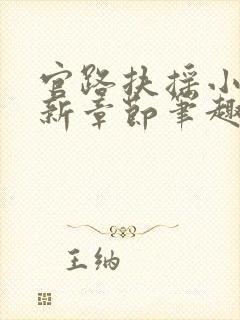 官路扶摇小
新章节笔趣
王纳